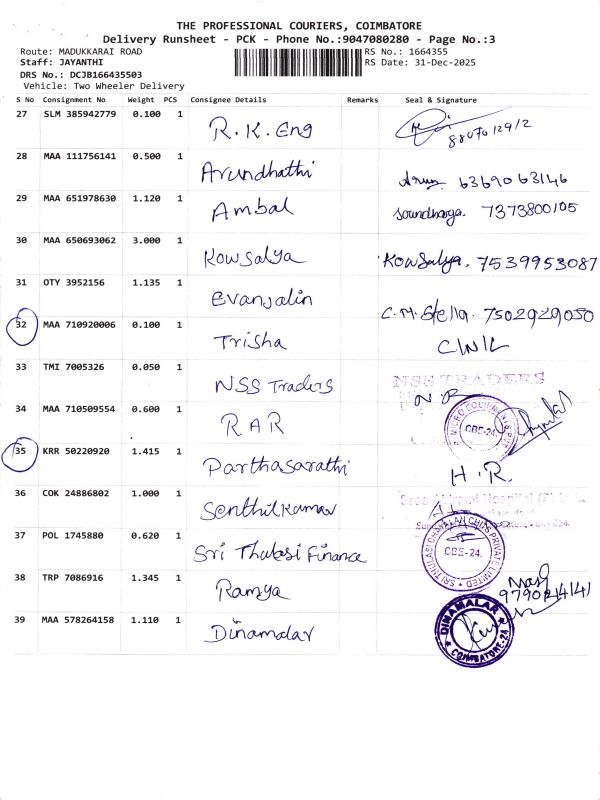 THE PROFESSIONAL COURIERS, COIMBATORE
Delivery Runsheet - PCK - Phone No.:9047080280 - Page No.:3
Route: MADUKKARAI ROAD RS No.: 1664355
Staff: JAYANTHI RS Date: 31-Dec-2025
DRS No.: DCJB166435503
Vehicle: Two Wheeler Delivery
S No Consignment No Weight PCS Consignee Details Remarks Seal & Signature
27 SLM 385942779 0.100 1 R.K. Eng 8807012912
28 MAA 111756141 0.500 1 Arundhathi Arun 6369063146
29 MAA 651978630 1.120 1 Ambal Soundharya. 7373800105
30 MAA 650693062 3.000 1 Kowsalya Kowsalya. 7539953087
31 OTY 3952156 1.135 1 Evanjalin C.M. Stella. 7502929050
32 MAA 710920006 0.100 1 Trisha C/N/L
33 TMI 7005326 0.050 1 NSS Traders NSS TRADERS
34 MAA 710509554 0.600 1 RAR CBS-24.
35 KRR 50220920 1.415 1 Parthasarathi H.R.
36 COK 24886802 1.000 1 Senthilkumar
37 POL 1745880 0.620 1 Sri Thulasi Finance CBS-24.
38 TRP 7086916 1.345 1 Ramya 9790214141
39 MAA 578264158 1.110 1 Dinamalar DINAMALAR COIMBATORE-24